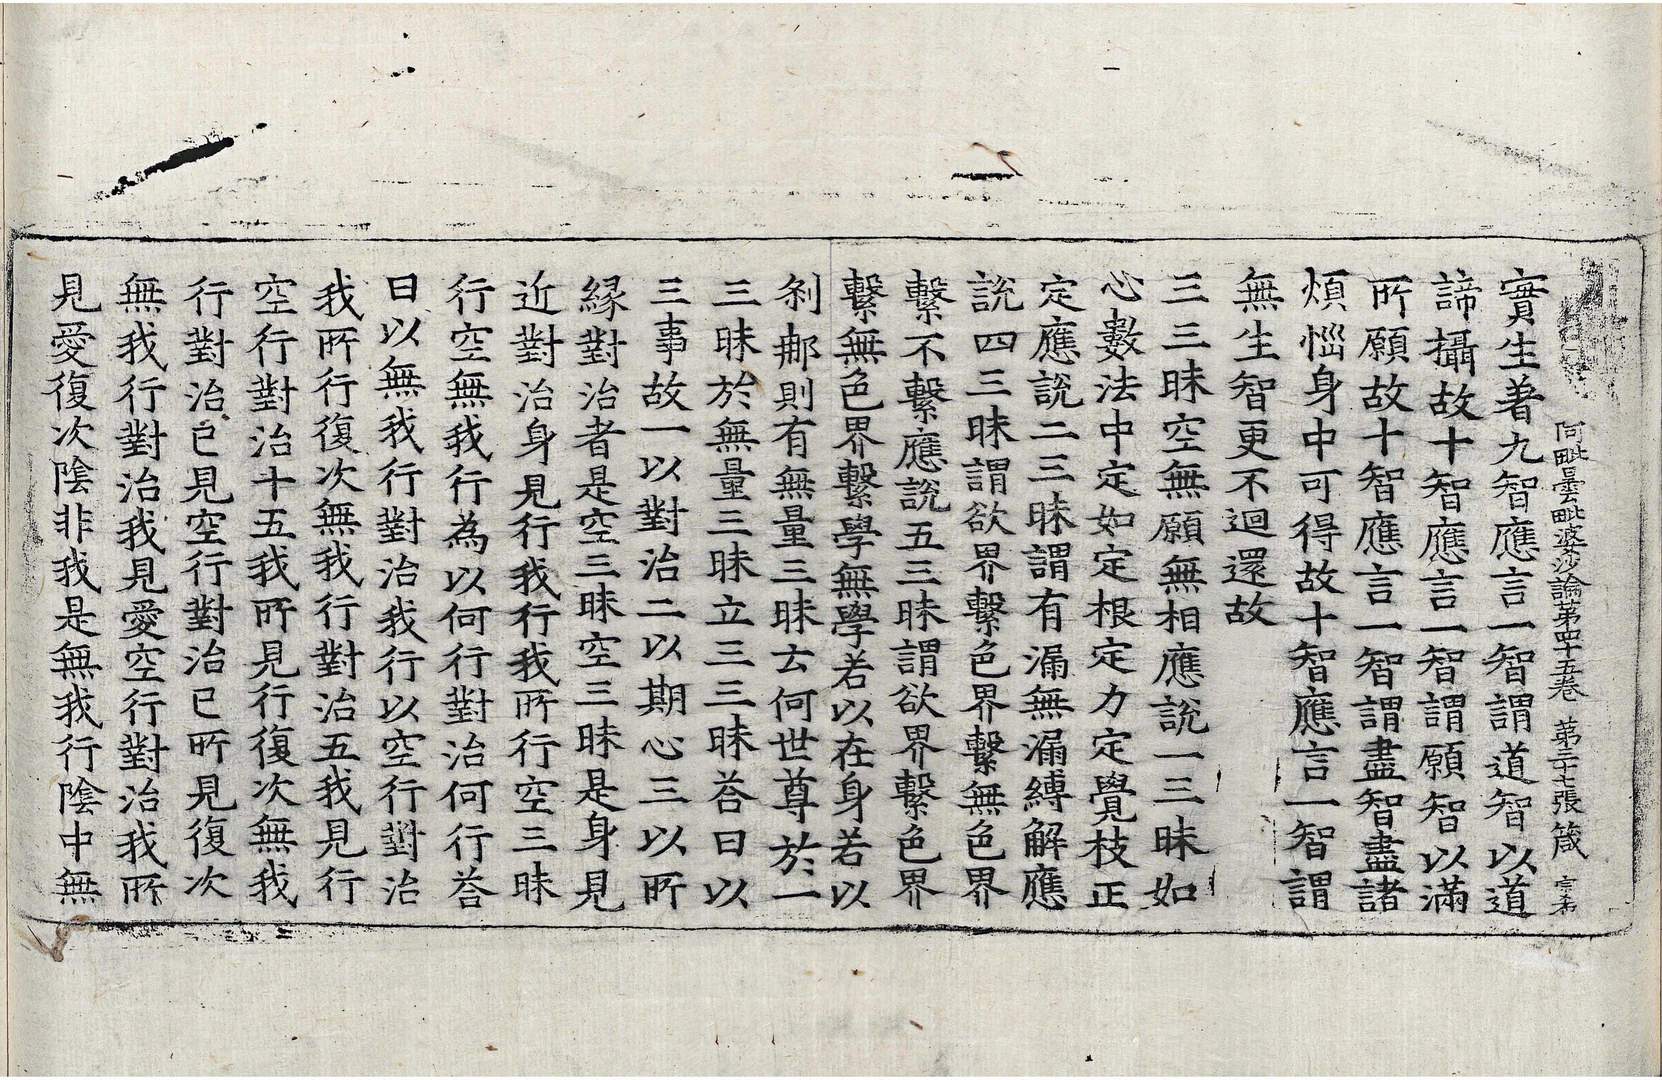 阿毗曇毗婆沙論第四十五卷 第三十七張 箴 宗希
實生著九智應言一智謂道智以道
諦攝故十智應言一智謂願智以滿
所願故十智應言一智謂盡智盡諸
煩惱身中可得故十智應言一智謂
無生智更不迴還故
三三昧空無願無相應說一三昧如
心數法中定如定根定力定覺枝正
定應說二三昧謂有漏無漏縛解應
說四三昧謂欲界繫色界繫無色界
繫不繫應說五三昧謂欲界繫色界
繫無色界繫學無學若以在身若以
剎那則有無量三昧云何世尊於一
三昧於無量三昧立三三昧荅曰以
三事故一以對治二以期心三以所
緣對治者是空三昧空三昧是身見
近對治身見行我行我所行空三昧
行空無我行為以何行對治何行荅
曰以無我行對治我行以空行對治
我所行復次無我行對治五我見行
空行對治十五我所見行復次無我
行對治已見空行對治已所見復次
無我行對治我見愛空行對治我所
見愛復次陰非我是無我行陰中無